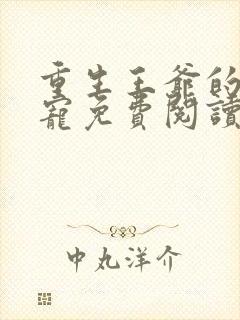 重生王爺的
寵免費閱讀
中丸洋介